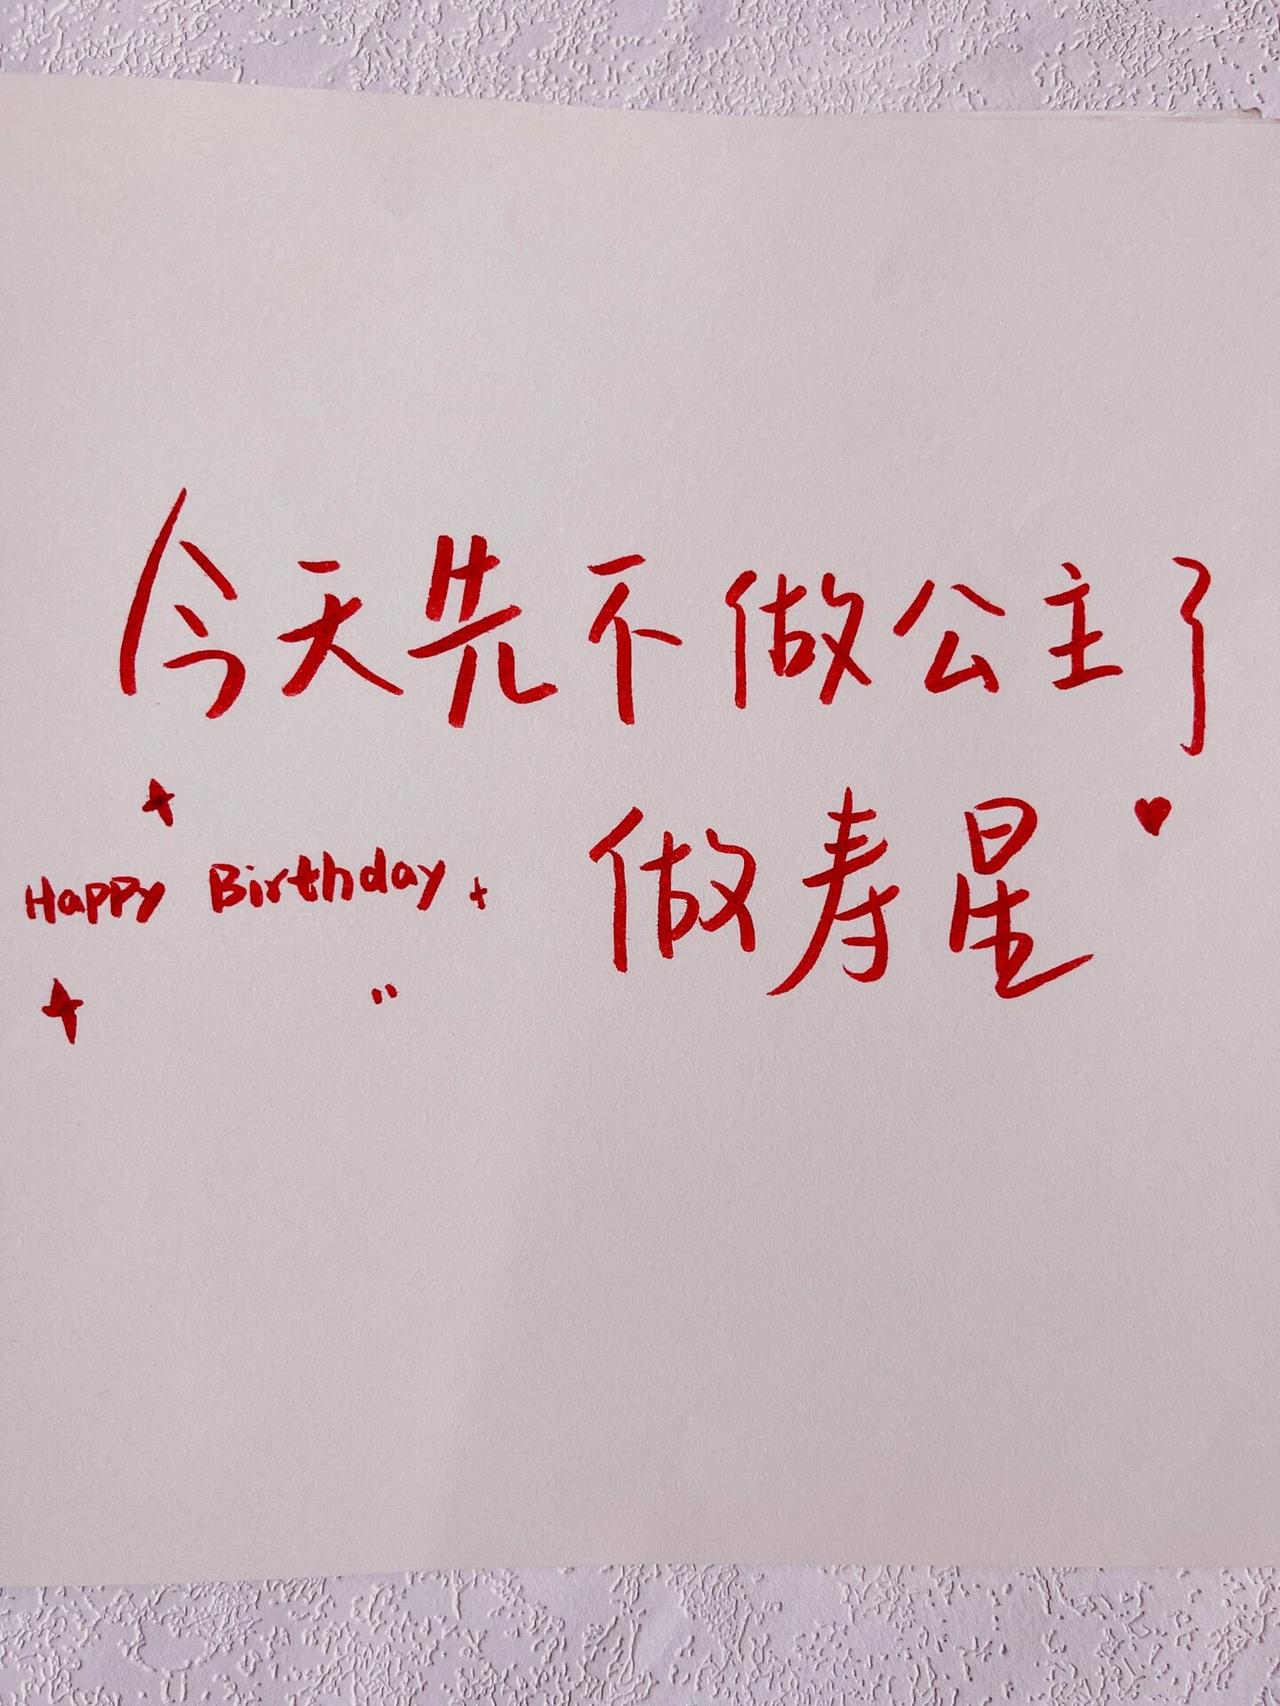 今天先不做公主了
做寿星
Happy Birthday